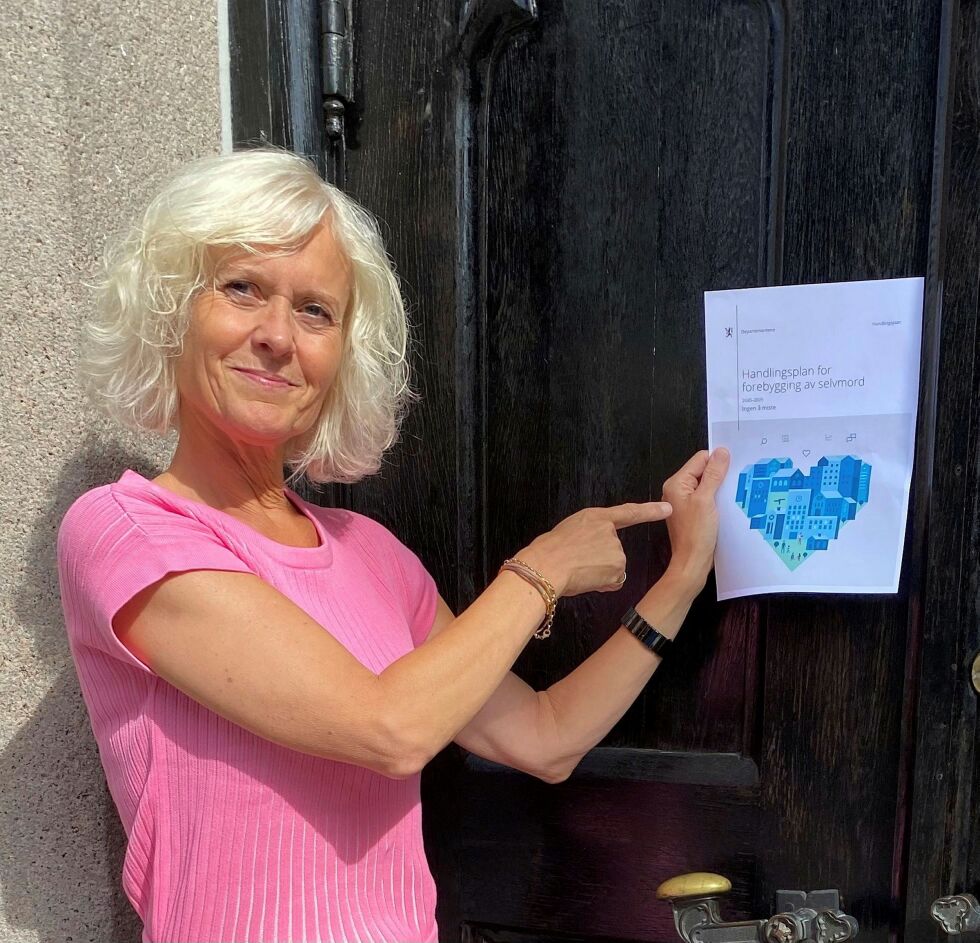 Departementene
Handlingsplan
Handlingsplan for
forebygging av selvmord
Ingen å miste